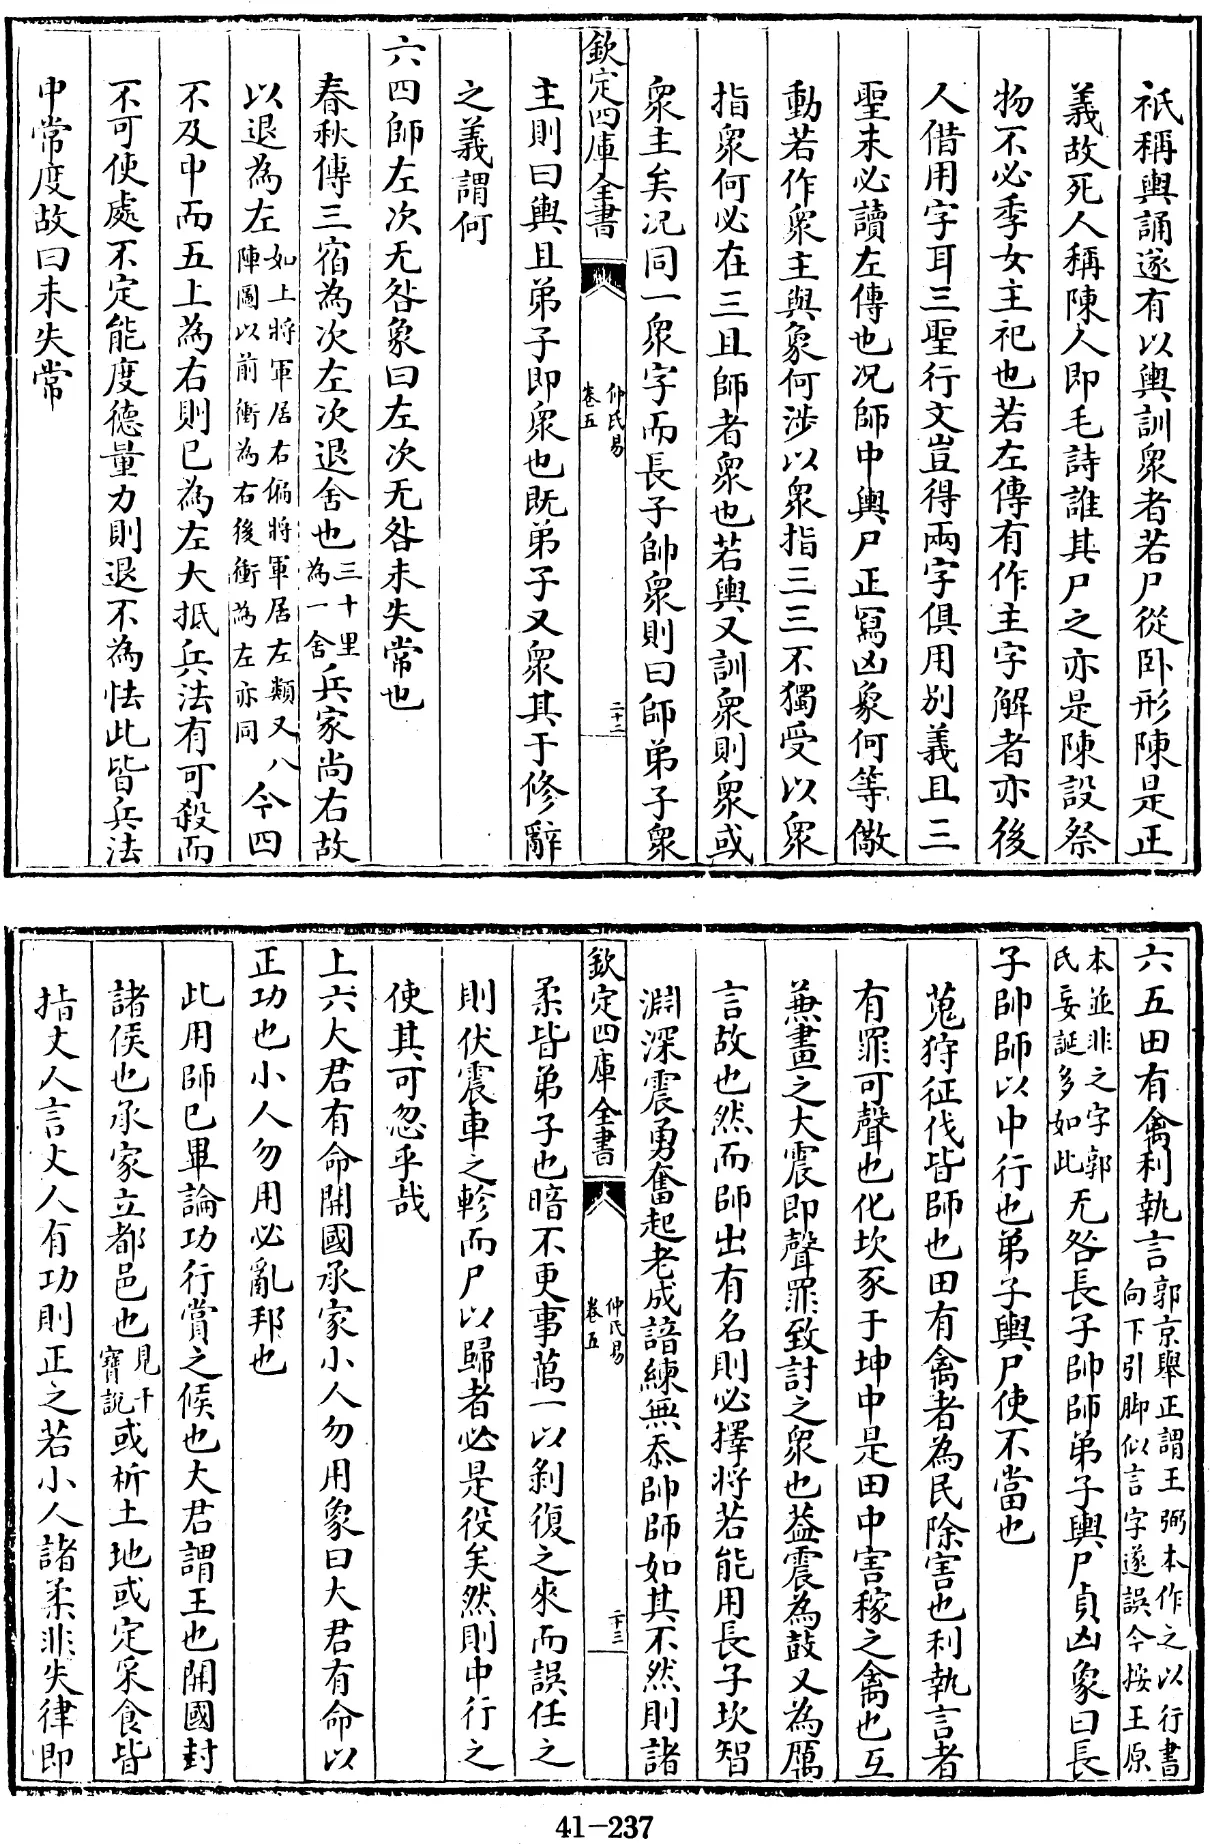 祇稱輿誦遂有以輿訓衆者若尸從卧形陳是正
義故死人稱陳人即毛詩誰其尸之亦是陳設祭
物不必季女主祀也若左傳有作主字解者亦後
人借用字耳三聖行文豈得兩字俱用别義且三
聖未必讀左傳也况師中輿尸正寫凶象何等儆
動若作衆主與象何涉以衆指三三不獨受以衆
指衆何必在三且師者衆也若輿又訓衆則衆或
衆主矣况同一衆字而長子帥衆則曰師弟子衆
欽定四庫全書
仲氏易
卷五
二十二
主則曰輿且弟子即衆也既弟子又衆其于修辭
之義謂何
六四師左次无咎象曰左次无咎未失常也
春秋傳三宿為次左次退舍也三十里為一舍兵家尚右故
以退為左如上將軍居右偏將軍居左類又八陣圖以前衝為右後衝為左亦同今四
不及中而五上為右則已為左大抵兵法有可殺而
不可使處不定能度德量力則退不為怯此皆兵法
中常度故曰未失常
六五田有禽利執言郭京舉正謂王弼本作之以行書向下引脚似言字遂誤今按王原
本並非之字郭氏妄誕多如此无咎長子帥師弟子輿尸貞凶象曰長
子帥師以中行也弟子輿尸使不當也
蒐狩征伐皆師也田有禽者為民除害也利執言者
有罪可聲也化坎豕于坤中是田中害稼之禽也互
兼畫之大震即聲罪致討之衆也葢震為鼓又為厲
言故也然而師出有名則必擇將若能用長子坎智
淵深震勇奮起老成諳練無忝帥師如其不然則諸
欽定四庫全書
仲氏易
卷五
二十三
柔皆弟子也暗不更事萬一以剝復之來而誤任之
則伏震車之軫而尸以歸者必是役矣然則中行之
使其可忽乎哉
上六大君有命開國承家小人勿用象曰大君有命以
正功也小人勿用必亂邦也
此用師已畢論功行賞之候也大君謂王也開國封
諸侯也承家立都邑也見干寶說或析土地或定采食皆
指丈人言丈人有功則正之若小人諸柔非失律即
41-237